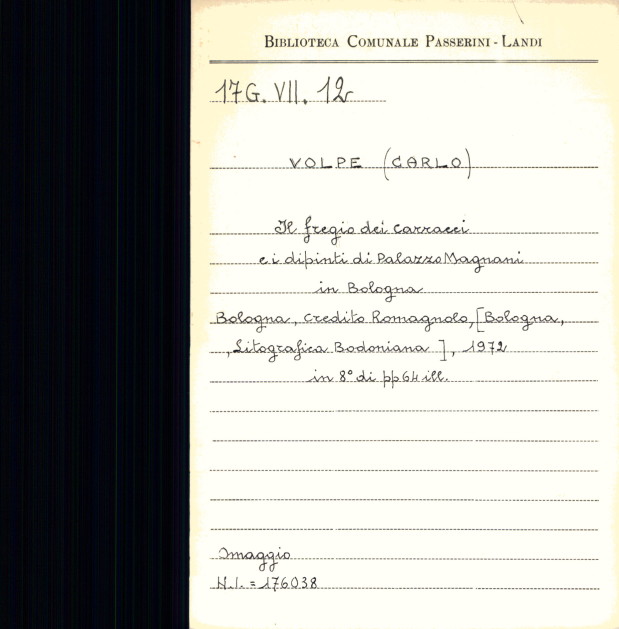 BIBLIOTECA COMUNALE PASSERINI - LANDI
17G. VII. 12
VOLPE (CARLO)
Il fregio dei Carracci
e i dipinti di Palazzo Magnani
in Bologna
Bologna, Credito Romagnolo, [Bologna,
, Litografica Bodoniana ], 1972
in 8° di pp 64 ill.
Omaggio
N.I. = 176038